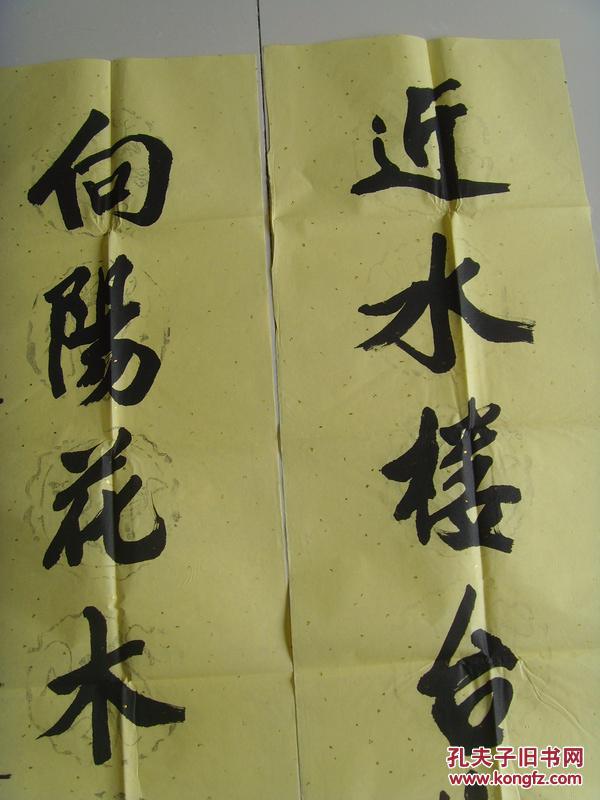 近水楼台
向陽花木
孔夫子旧书网
www.kongfz.com